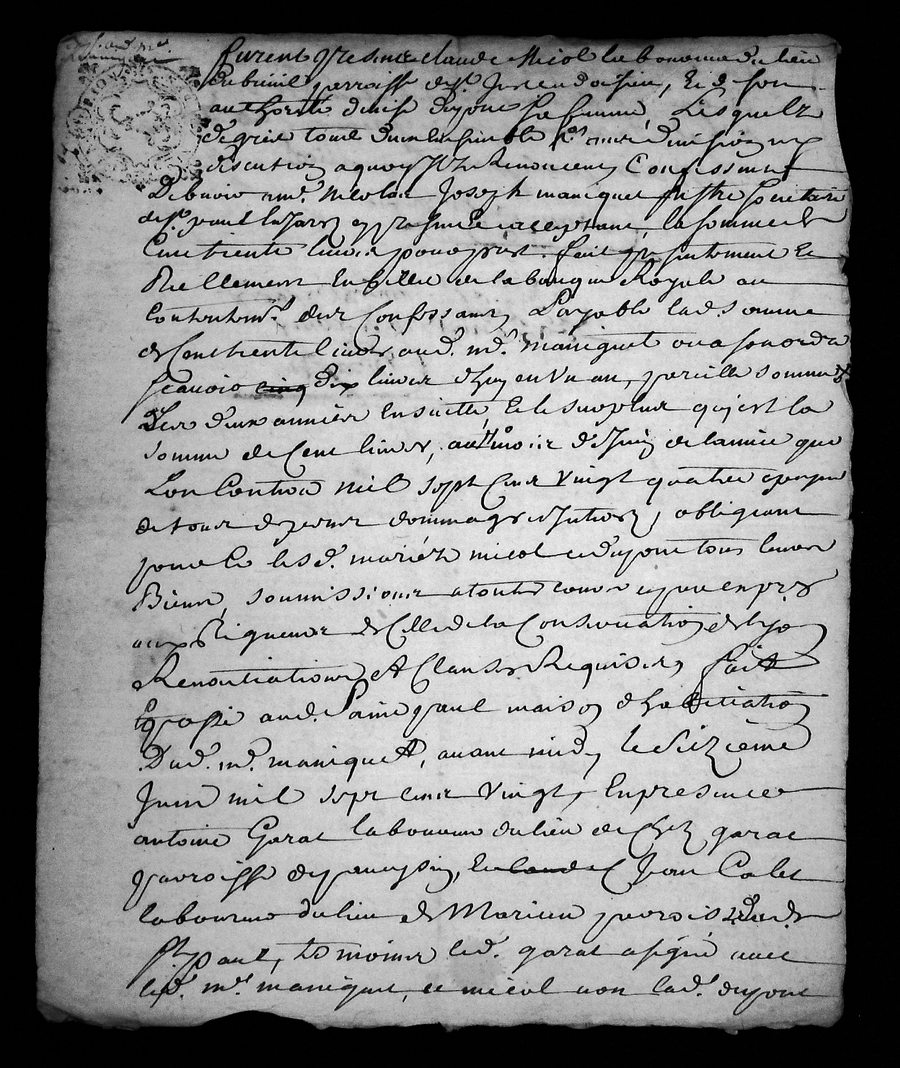 furent presens claude Micol laboureur du lieu
du parroisse de St. Just en doisieu, et de son
authorité dupont sa femme, Lesquelz
de gré tout deux ensemble division ny
discution a quoy ilz Renoncent Confessent
Debvoir a mr. Nicolas Joseph maniquet
de St. paul en Jarez present et acceptant, la somme de
Cent trente livres pour prest fait presentement et
Reellement en billet de la banque Royale au
Contentemt. des Confessants Payable lad. somme
de Cent trente livres aud. mr. maniquet ou a son ordre
scavoir cinq dix livres d'huy en un an, pareille somme
des deux années Ensuitte, et le surplus qu'est la
somme de Cent livres, au mois de Juin de l'année que
L'on Contera mil sept cens vingt quatre a peyne
de tous despens dommages Interests, obligeant
pour ce lesd. mariés micol et dupont tous leurs
Biens, soumissions a toutes cours et par exprés
aux Rigueurs de Celle de la Conservation de Lyon
Renontiations et Clauses Requises, fait
et passé aud. Saint paul maison d'habitation
Dud. mr. maniquet, avant midy le seizieme
Juin mil sept cens vingt, En presence
antoine Garat laboureur du lieu de Chez garat
parroisse de, et claude Jean Colet
laboureur du lieu de parroisse dud.
St. paul, tesmoins led. garat a signé avec
led. mr. maniquet, et micol non lad. dupont